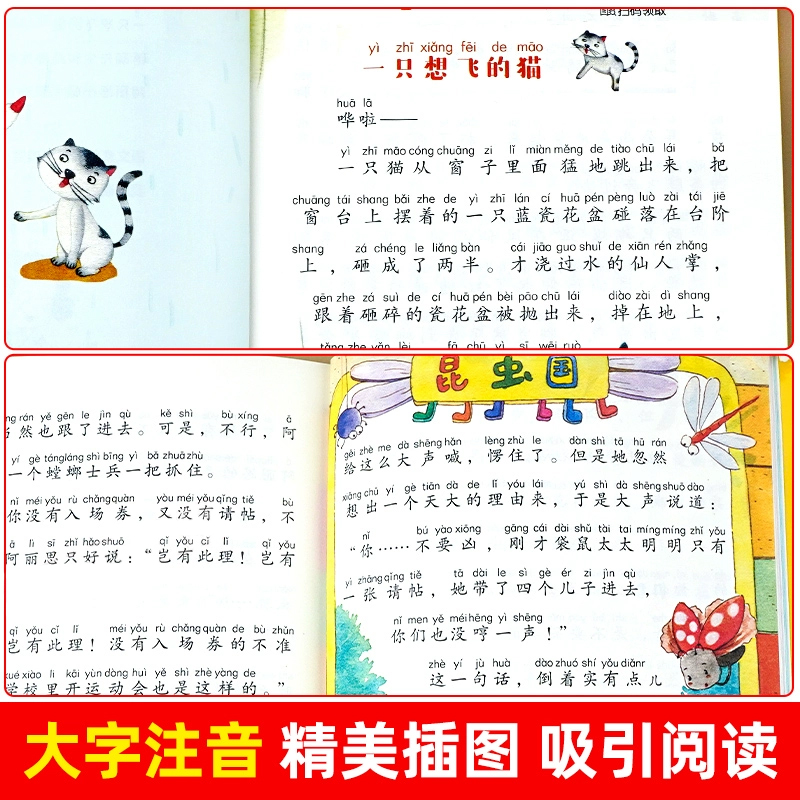 图书扫码领取
yì zhī xiǎng fēi de māo
一只想飞的猫
huā lā
哗啦——
yì zhī māo cóng chuāng zi lǐ miàn měng de tiào chū lái bǎ
一只猫从窗子里面猛地跳出来，把
chuāng tái shang bǎi zhe de yì zhī lán cí huā pén pèng luò zài tái jiē
窗台上摆着的一只蓝瓷花盆碰落在台阶
shang zá chéng le liǎng bàn cái jiāo guo shuǐ de xiān rén zhǎng
上，砸成了两半。才浇过水的仙人掌，
gēn zhe zá suì de cí huā pén bèi pāo chū lái diào zài dì shang
跟着砸碎的瓷花盆被抛出来，掉在地上，
rán yě gēn le jìn qù kě shì bù xíng ā
然也跟了进去。可是，不行，阿
yí gè táng láng shì bīng yì bǎ zhuā zhù
一个螳螂士兵一把抓住。
nǐ méi yǒu rù chǎng quàn yòu méi yǒu qǐng tiě bù
你没有入场券，又没有请帖，不
ā lì sī zhǐ hǎo shuō qǐ yǒu cǐ lǐ qǐ yǒu
阿丽思只好说：“岂有此理！岂有
qǐ yǒu cǐ lǐ méi yǒu rù chǎng quàn de bù zhǔn
岂有此理！没有入场券的不准
xué xiào lǐ kāi yùn dòng huì yě shì zhè yàng de
学校里开运动会也是这样的。”
昆虫国
gěi zhè me dà shēng hǎn lèng zhù le dàn shì tā hū rán
给这么大声喊，愣住了。但是她忽然
xiǎng chū yí gè tiān dà de lǐ yóu lái yú shì dà shēng shuō dào
想出一个天大的理由来，于是大声说道：
nǐ bú yào xiōng gāng cái dài shǔ tài tai míng míng zhǐ yǒu
“你……不要凶，刚才袋鼠太太明明只有
yì zhāng qǐng tiě tā dài le sì gè ér zi jìn qù
一张请帖，她带了四个儿子进去，
nǐ men yě méi hēng yì shēng
你们也没哼一声！”
zhè yí jù huà dào zhuó shí yǒu diǎnr
这一句话，倒着实有点儿
大字注音 精美插图 吸引阅读